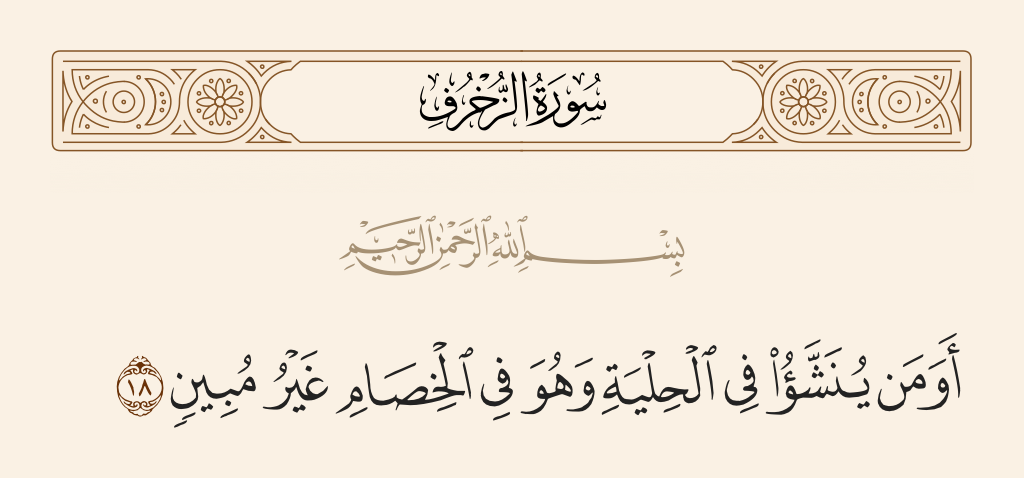 سُورَةُ الزُّخْرُفِ
بِسْمِ ٱللَّهِ ٱلرَّحْمَٰنِ ٱلرَّحِيمِ
أَوَمَن يُنَشَّؤُا۟ فِى ٱلْحِلْيَةِ وَهُوَ فِى ٱلْخِصَامِ غَيْرُ مُبِينٍ ١٨